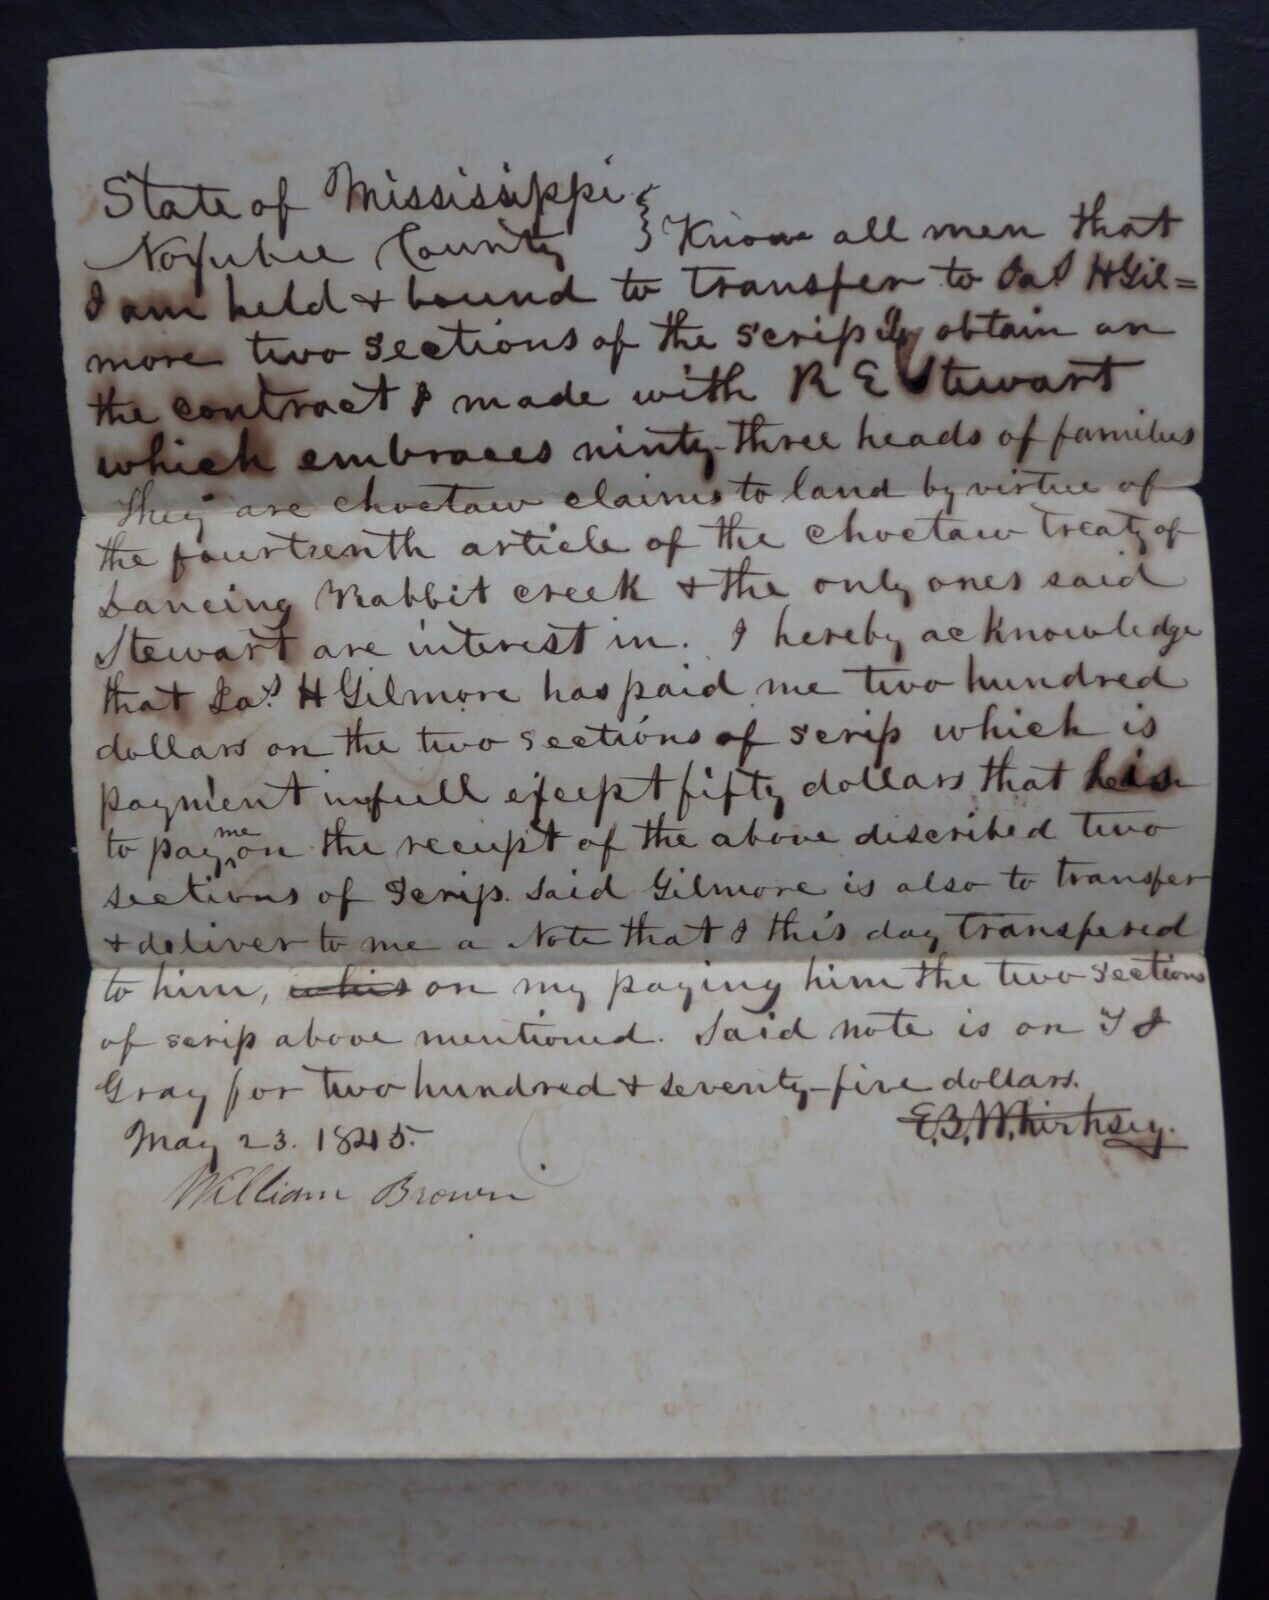 State of Mississippi }
Noxubee County } Know all men that
I am held & bound to transfer to Jas H Gil=
more two sections of the scrip I obtain on
the contract I made with R E Stewart
which embraces ninty-three heads of families
They are choctaw claims to land by virtue of
the fourteenth article of the choctaw treaty of
Dancing Rabbit creek & the only ones said
Stewart are interest in. I hereby acknowledge
that Jas. H Gilmore has paid me two hundred
dollars on the two sections of scrip which is
payment in full except fifty dollars that he is
to pay me on the receipt of the above discribed two
sections of scrip. Said Gilmore is also to transfer
& deliver to me a Note that I this day transfered
to him, on my paying him the two sections
of scrip above mentioned. Said note is on
Gray for two hundred & seventy-five dollars.
E.B.W. Kirksey.
May 23. 1845.
William Brown